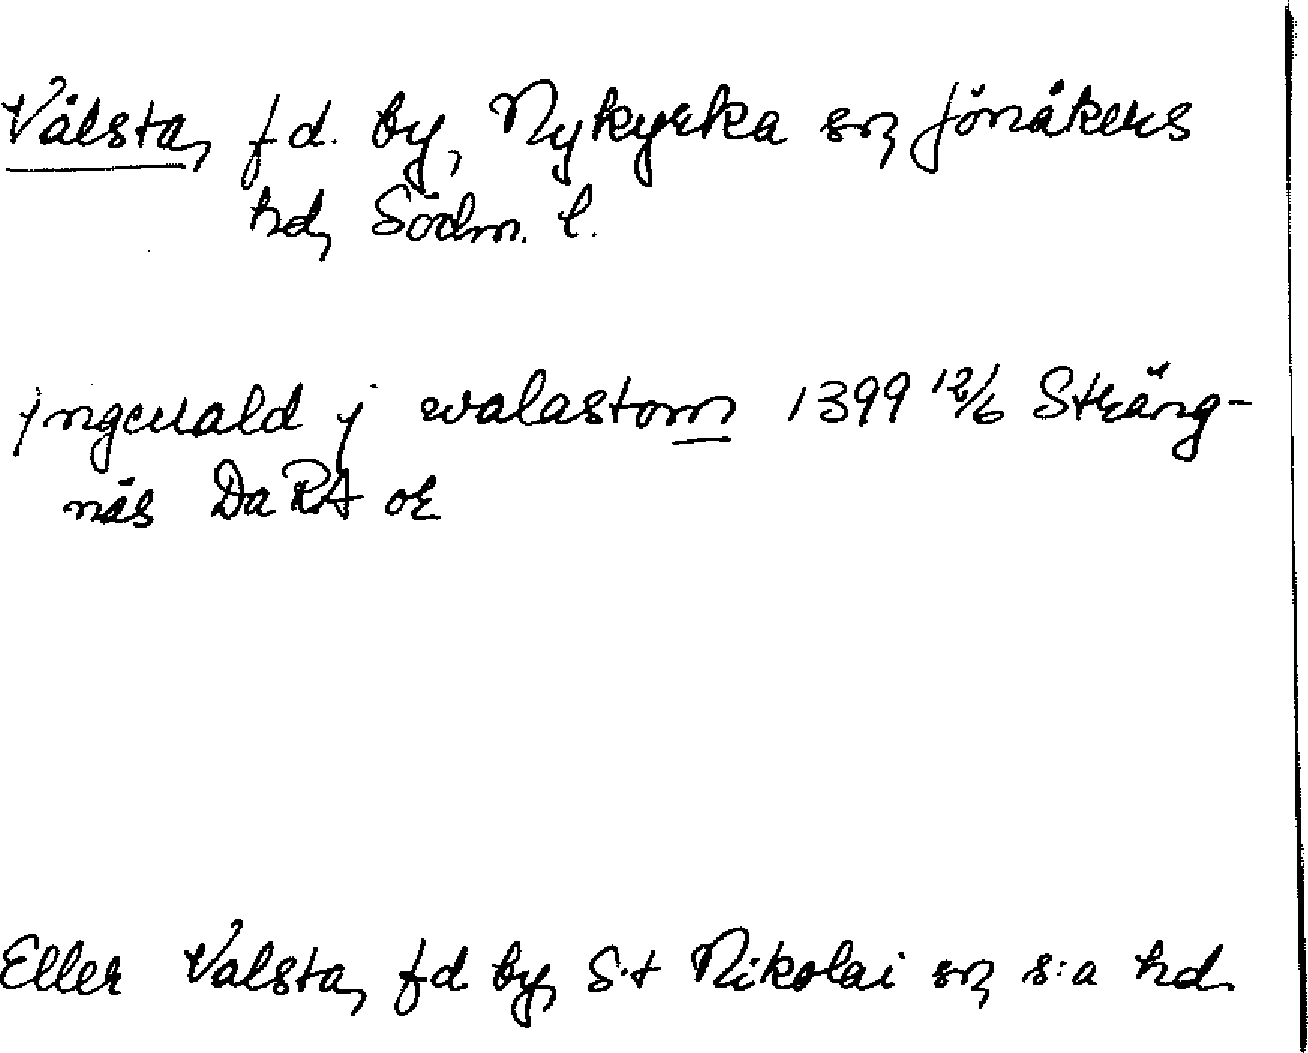 Vålsta, f d. by, Nykyrka sn, Jönåkers
hd, Södm. l.
jngeuald j walastom 1399 12/6 Sträng-
näs DaRA or
Eller Valsta, f d by, S:t Nikolai sn, s:a hd.